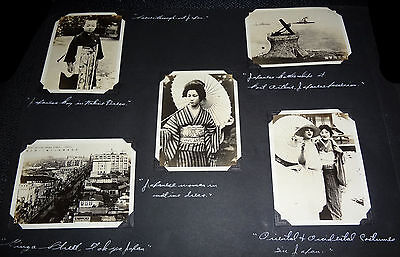 "Scenes throughout Japan"
"Japanese Boy in Native Dress."
"Japanese Battleships at
Port Arthur, Japanese
"Japanese women in
native dress."
"Ginza Street, Tokyo Japan"
"Oriental & Occidental Costumes
in Japan."